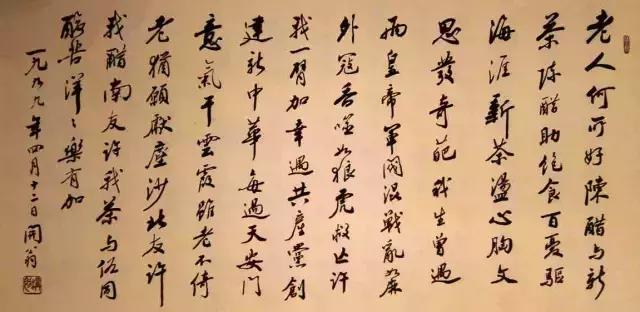 老人何所好陳醋与新
茶陈醋助饱食百憂驱
海涯新茶盪心胸文
思發奇葩我生曾遇
两皇帝军阀混戰亂麻
外寇吞噬如狼虎救亡许
我一臂加幸遇共產黨創
建新中華每過天安門
意氣干雲霞雖老不倚
老猶願獻塵沙北友许
我醋南友许我茶与伍同
酸苦洋々樂有加
一九九九年四月十二日開翁